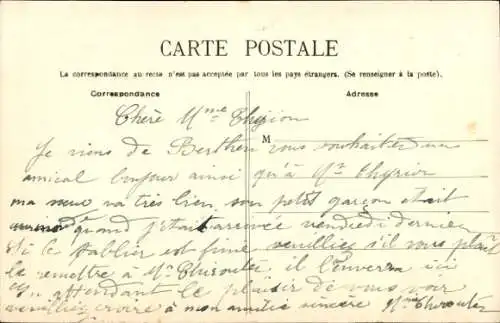 CARTE POSTALE
La correspondance au recto n'est pas acceptée par tous les pays étrangers. (Se renseigner à la poste).
Correspondance
Adresse
M
Chère Mme Thyrion
Je viens de Berthen vous souhaiter un
amical bonjour ainsi qu'à Mr Thyrion
ma va très bien son petit garçon était
quand j'étais arrivée vendredi dernier
Si le tablier est fini veuilliez s'il vous plaît
le remettre à Mr il l'enverra ici
En attendant le plaisir de vous voir
veuilliez croire à mon amitié sincère Mme